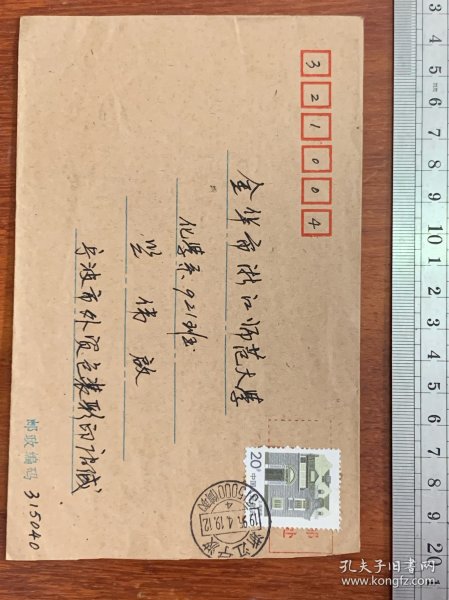 321004
金华市浙江师范大学
化学系921班
伟 启
宁波市外贸包装
邮政编码 315040
20分
中国邮政
浙江宁波
315000
96.4.19.12
孔夫子旧书网
www.kongfz.com
3 4 5 6 7 8 9 10 1 2 3 4 5 6 7 8 9 20 1